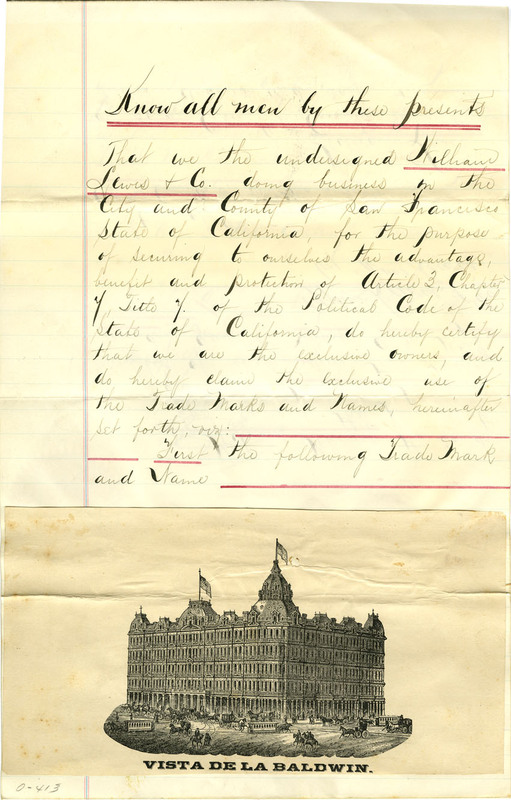 Know all men by these presents
That we the undersigned William
Lewis & Co. doing business in the
City and County of San Francisco
State of California, for the purpose
of securing to ourselves the advantage,
benefit and protection of Article 3, Chapter
7, Title 7. of the Political Code of the
State of California, do hereby certify
that we are the exclusive owners, and
do, hereby claim the exclusive use of
the Trade Marks and Names, hereinafter
set forth, viz:
First the following Trade Mark
and Name
VISTA DE LA BALDWIN.
0-413